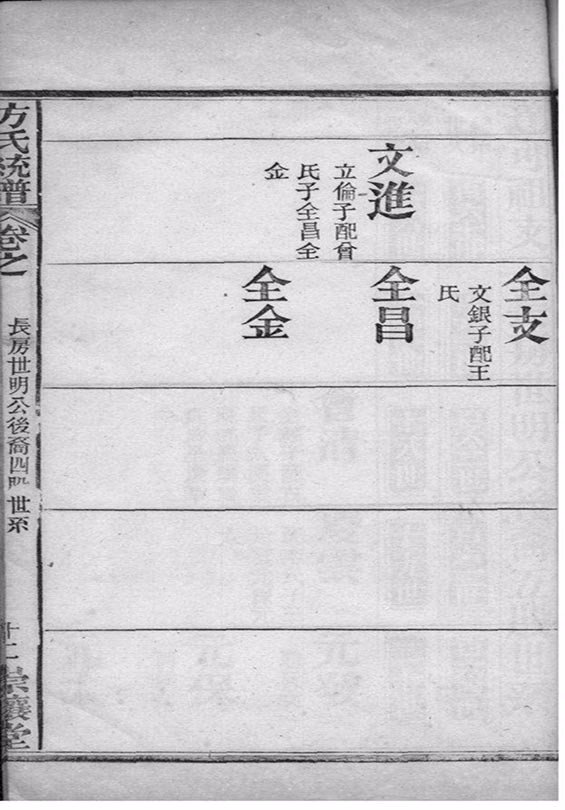 文進
立倫子配曾
氏子全昌全
金
全支
文銀子配王
氏
全昌
全金
方氏統譜
卷之
長房世明公後裔四 世系
十二
讓堂